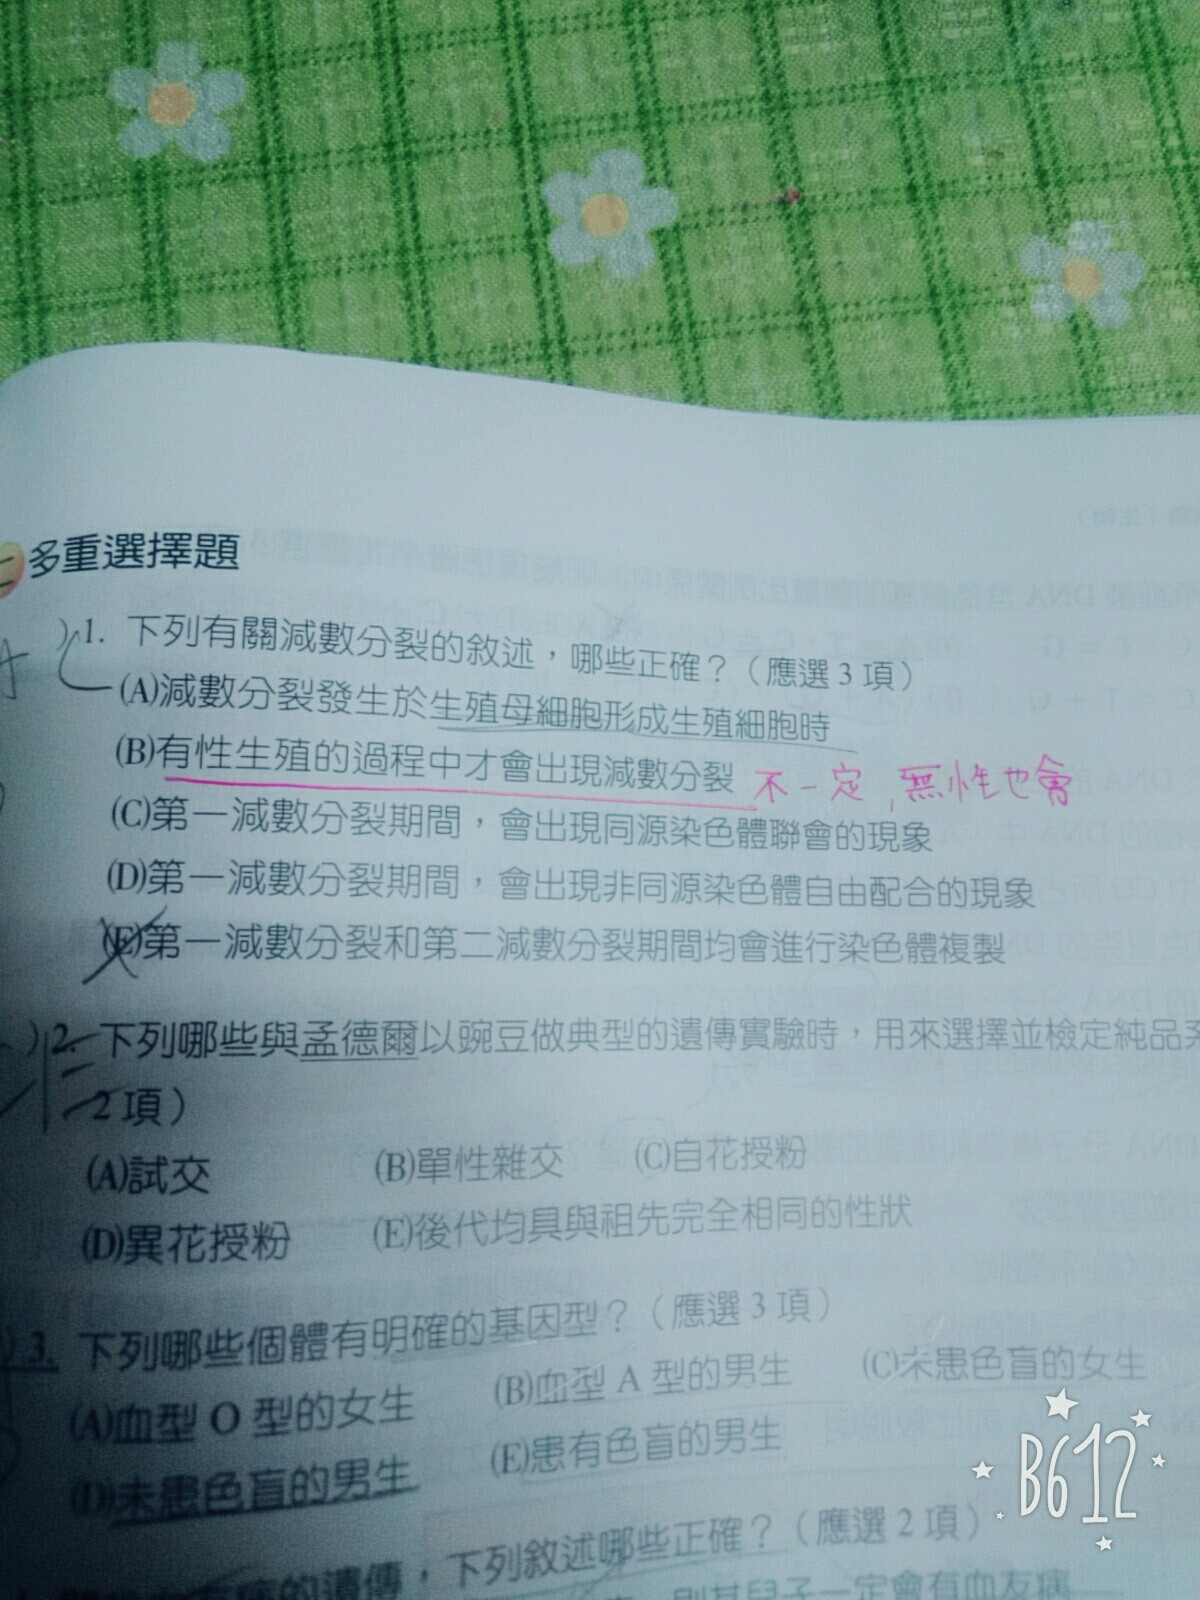 多重選擇題
1. 下列有關減數分裂的敘述，哪些正確？（應選3項）
(A)減數分裂發生於生殖母細胞形成生殖細胞時
(B)有性生殖的過程中才會出現減數分裂 不一定，無性也會
(C)第一減數分裂期間，會出現同源染色體聯會的現象
(D)第一減數分裂期間，會出現非同源染色體自由配合的現象
(E)第一減數分裂和第二減數分裂期間均會進行染色體複製
2. 下列哪些與孟德爾以豌豆做典型的遺傳實驗時，用來選擇並檢定純品系
2項）
(A)試交 (B)單性雜交 (C)自花授粉
(D)異花授粉 (E)後代均具與祖先完全相同的性狀
3. 下列哪些個體有明確的基因型？（應選3項）
(A)血型O型的女生 (B)血型A型的男生 (C)未患色盲的女生
(D)未患色盲的男生 (E)患有色盲的男生
的遺傳，下列敘述哪些正確？（應選2項）
則其兒子一定會有血友病
B612